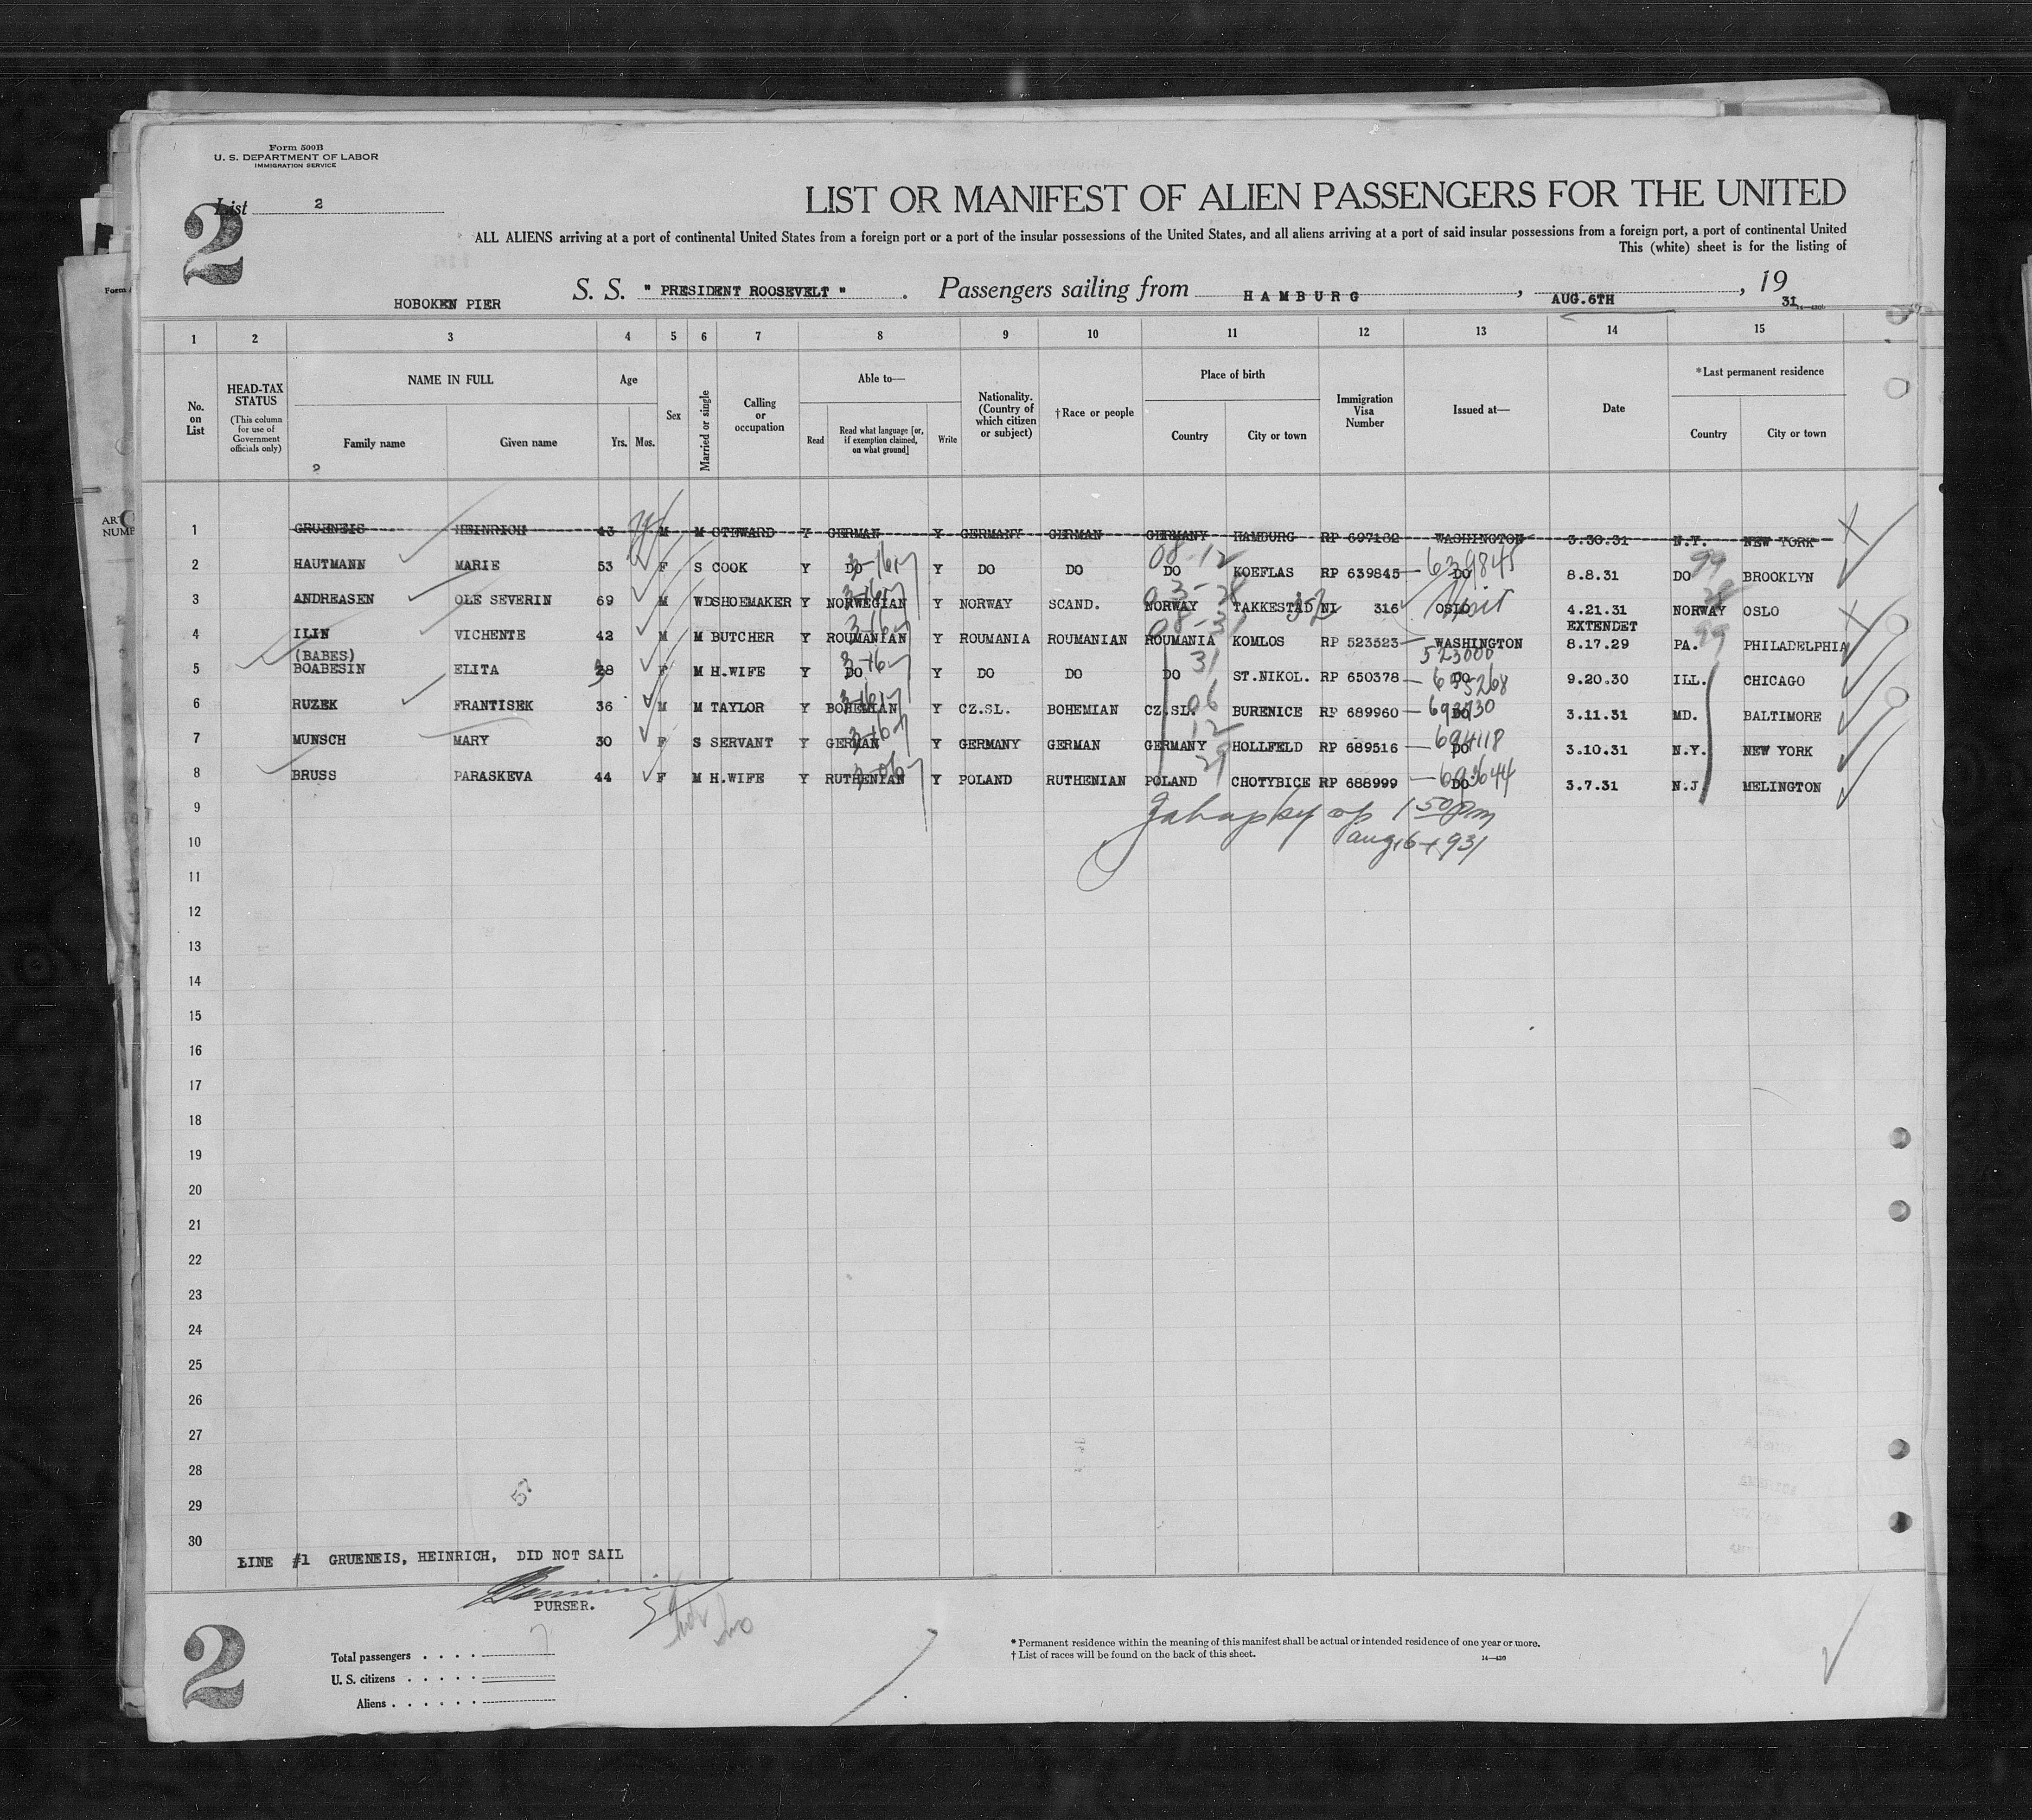 Form 500B
U. S. DEPARTMENT OF LABOR
IMMIGRATION SERVICE
List 2
2
LIST OR MANIFEST OF ALIEN PASSENGERS FOR THE UNITED
ALL ALIENS arriving at a port of continental United States from a foreign port or a port of the insular possessions of the United States, and all aliens arriving at a port of said insular possessions from a foreign port, a port of continental United
This (white) sheet is for the listing of
HOBOKEN PIER S. S. " PRESIDENT ROOSEVELT ". Passengers sailing from HAMBURG, AUG.6TH, 19 31
1 2 3 4 5 6 7 8 9 10 11 12 13 14 15
No. on List
HEAD-TAX STATUS (This column for use of Government officials only)
NAME IN FULL Family name Given name
Age Yrs. Mos.
Sex
Married or single
Calling or occupation
Able to— Read Read what language [or, if exemption claimed, on what ground] Write
Nationality. (Country of which citizen or subject)
†Race or people
Place of birth Country City or town
Immigration Visa Number
Issued at—
Date
*Last permanent residence Country City or town
1 GRUENEIS HEINRICH 43 M M STEWARD Y GERMAN Y GERMANY GERMAN GERMANY HAMBURG RP 697182 WASHINGTON 3.30.31 N.Y. NEW YORK
2 HAUTMANN MARIE 53 F S COOK Y DO Y DO DO DO KOEFLAS RP 639845 DO 639845 8.8.31 DO 99 BROOKLYN
3 ANDREASEN OLE SEVERIN 69 M WD SHOEMAKER Y NORWEGIAN Y NORWAY SCAND. NORWAY TAKKESTAD NI 316 OSLO 4.21.31 NORWAY OSLO
EXTENDET
4 ILIN VICHENTE 42 M M BUTCHER Y ROUMANIAN Y ROUMANIA ROUMANIAN ROUMANIA KOMLOS RP 523523 WASHINGTON 523000 8.17.29 PA. 99 PHILADELPHIA
(BABES)
5 BOABESIN ELITA 38 F M H.WIFE Y DO Y DO DO DO 31 ST.NIKOL. RP 650378 DO 9.20.30 ILL. CHICAGO
6 RUZEK FRANTISEK 36 M M TAYLOR Y BOHEMIAN Y CZ.SL. BOHEMIAN CZ.SL. 06 BURENICE RP 689960 DO 3.11.31 MD. BALTIMORE
7 MUNSCH MARY 30 F S SERVANT Y GERMAN Y GERMANY GERMAN GERMANY 12 HOLLFELD RP 689516 DO 694118 3.10.31 N.Y. NEW YORK
8 BRUSS PARASKEVA 44 F M H.WIFE Y RUTHENIAN Y POLAND RUTHENIAN POLAND 29 CHOTYBICE RP 688999 DO 693644 3.7.31 N.J. MELINGTON
9
10
11
12
13
14
15
16
17
18
19
20
21
22
23
24
25
26
27
28
29
30
LINE #1 GRUENEIS, HEINRICH, DID NOT SAIL
PURSER.
2
Total passengers 7
U. S. citizens
Aliens
* Permanent residence within the meaning of this manifest shall be actual or intended residence of one year or more.
† List of races will be found on the back of this sheet.
14—430